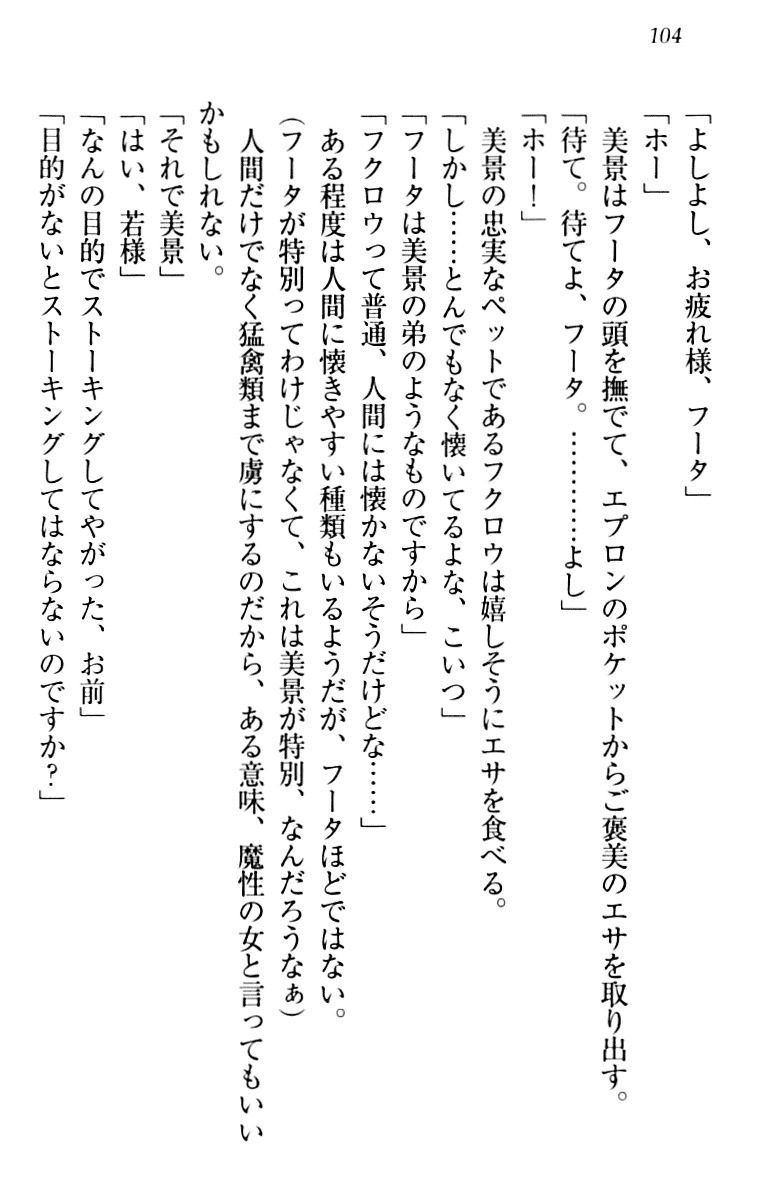 104
「よしよし、お疲れ様、フータ」
「ホー」
美景はフータの頭を撫でて、エプロンのポケットからご褒美のエサを取り出す。
「待て。待てよ、フータ。…………よし」
「ホー！」
美景の忠実なペットであるフクロウは嬉しそうにエサを食べる。
「しかし……とんでもなく懐いてるよな、こいつ」
「フータは美景の弟のようなものですから」
「フクロウって普通、人間には懐かないそうだけどな……」
ある程度は人間に懐きやすい種類もいるようだが、フータほどではない。
（フータが特別ってわけじゃなくて、これは美景が特別、なんだろうなぁ）
人間だけでなく猛禽類まで虜にするのだから、ある意味、魔性の女と言ってもいい
かもしれない。
「それで美景」
「はい、若様」
「なんの目的でストーキングしてやがった、お前」
「目的がないとストーキングしてはならないのですか？」